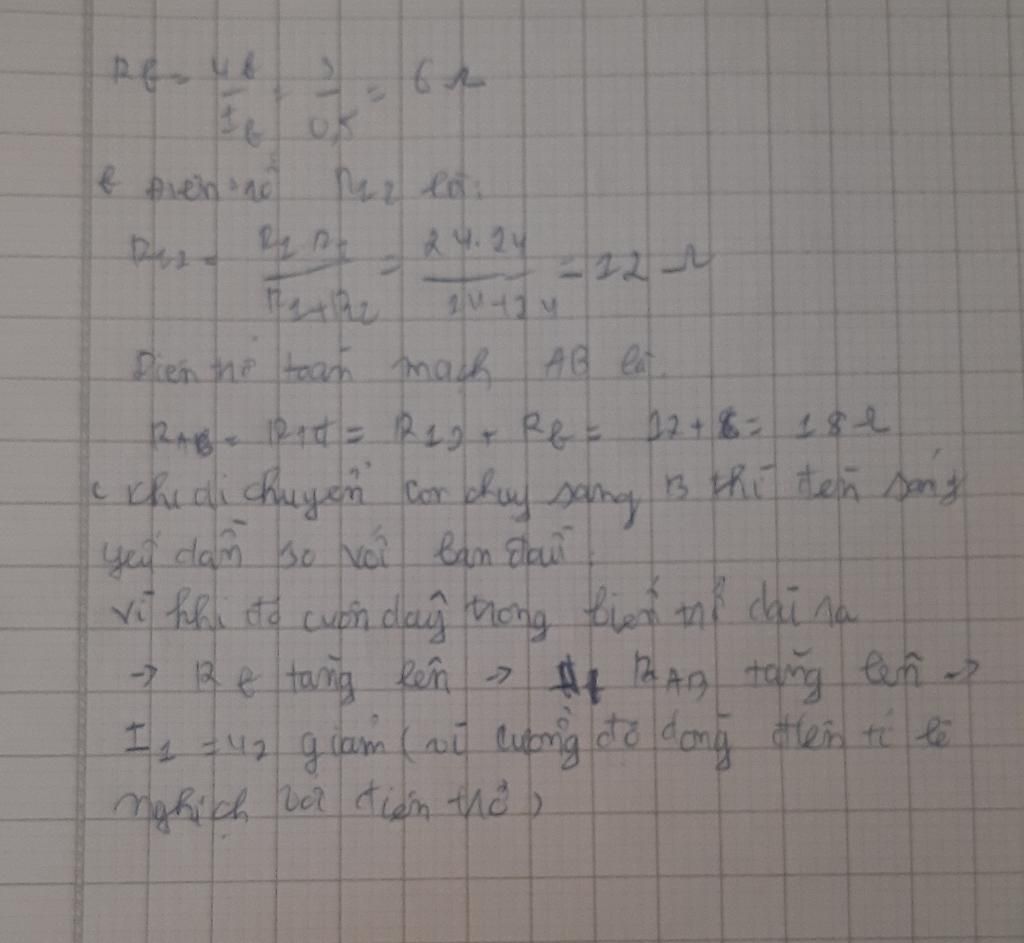 Rb = Ub/Ib = 3/0,5 = 6 Ω
b Điện trở R12 là:
R12 = R1.R2/R1+R2 = 24.24/24+24 = 12 Ω
Điện trở toàn mạch AB là
RAB = Rtđ = R12 + Rb = 12 + 6 = 18 Ω
c khi di chuyển con chạy sang B thì đèn sáng
yếu dần so với ban đầu
vì khi đó cuộn dây trong biến trở dài ra
→ Rb tăng lên → RAB tăng lên →
I1 = U2 giảm (vì cường độ dòng điện tỉ lệ
nghịch với điện trở)